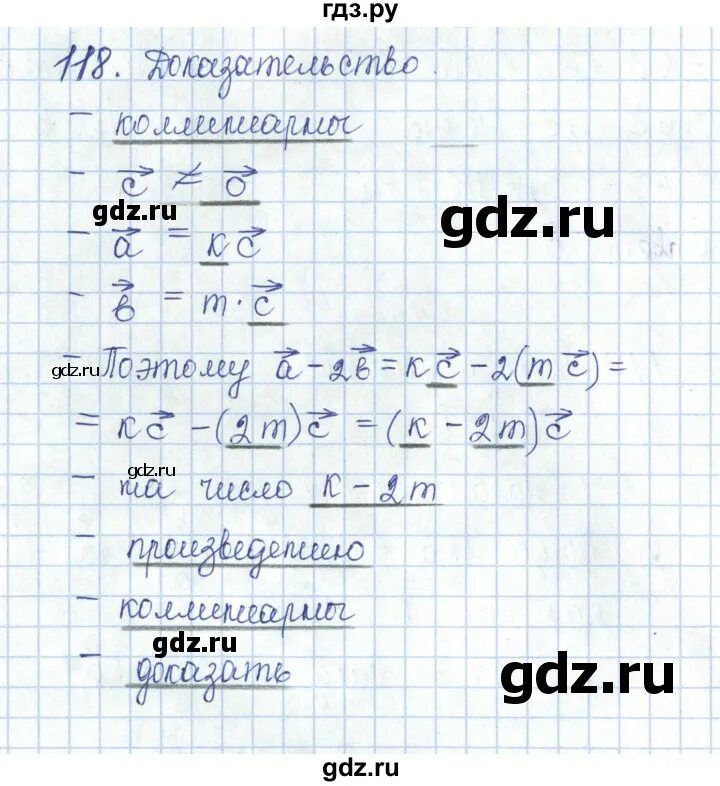 гдз.ру
118. Доказательство.
- коллинеарны
- c⃗ ≠ o⃗
gdz.ru
gdz.ru
- a⃗ = к c⃗
- в⃗ = m · c⃗
gdz.ru
- Поэтому a⃗ - 2в⃗ = к c⃗ - 2(m c⃗) =
= к c⃗ - (2m) c⃗ = (к - 2m) c⃗
gdz.ru
- на число к - 2m
- произведению
- коллинеарны
gdz.ru
gdz.ru
- доказать
gdz.ru